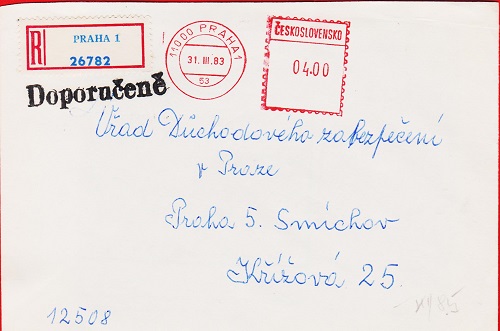 R PRAHA 1
26782
Doporučeně
11000 PRAHA 1
31. III. 83
53
ČESKOSLOVENSKO
04.00
Úřad Důchodového zabezpečení
v Praze
Praha 5. Smíchov
Křížová 25.
12508